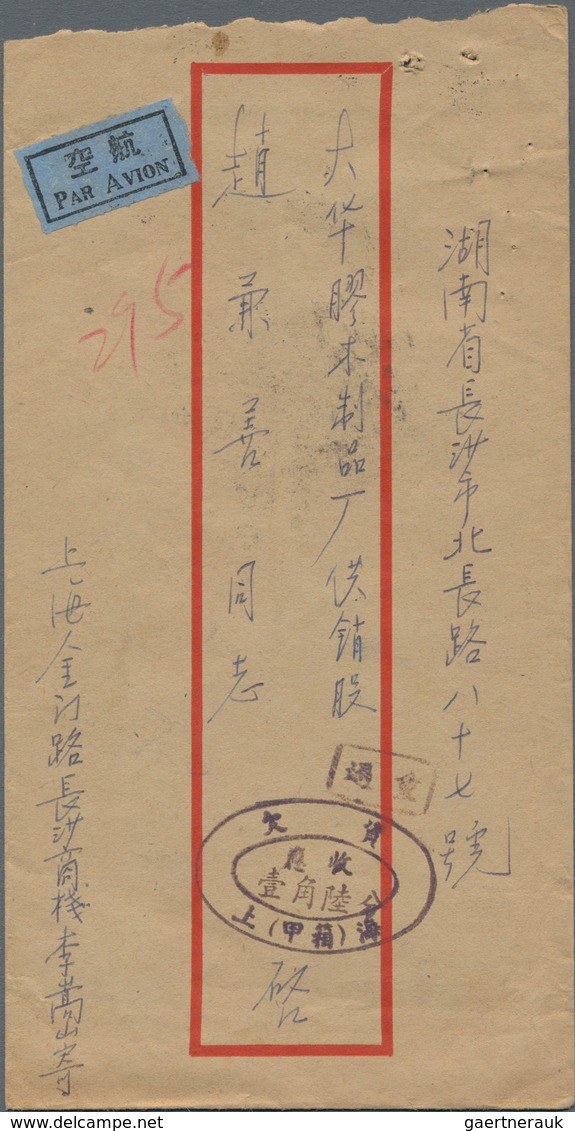 湖南省長沙市北長路八十七號
大华膠木制品厂供銷股
趙兼善同志 啓
上海金门路長沙商棧李嵩山寄
航空
PAR AVION
295
過重
欠資
應收
壹角陸分
上(甲箱)海
www.delcampe.net
gaertnerauk